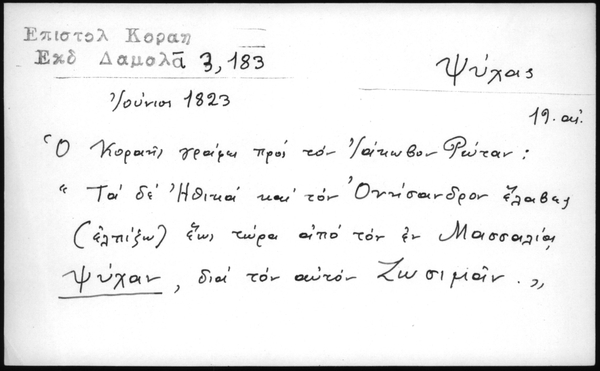 Επιστολ Κοραη
Εκδ Δαμαλᾶ 3, 183
Ψύχας
Ἰούνιος 1823
19. αἰ.
Ὁ Κοραῆς γράφει πρὸς τὸν Ἰάκωβον Ρώταν:
"Τὰ δὲ Ἠθικὰ καὶ τὸν Ὀνήσανδρον ἔλαβες
(ἐλπίζω) ἕως τώρα ἀπὸ τὸν ἐν Μασσαλίᾳ
Ψύχαν, διὰ τὸν αὐτὸν Ζωσιμᾶν."